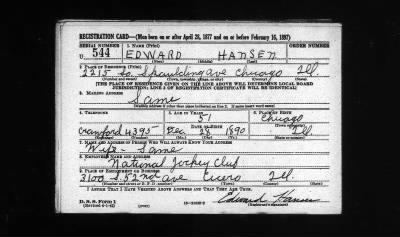 REGISTRATION CARD—(Men born on or after April 28, 1877 and on or before February 16, 1897)
SERIAL NUMBER 1. NAME (Print) ORDER NUMBER
U 544 EDWARD HANSEN
(First) (Middle) (Last)
2. PLACE OF RESIDENCE (Print)
2215 So. Spaulding ave Chicago Ill.
(Number and street) (Town, township, village, or city) (County) (State)
[THE PLACE OF RESIDENCE GIVEN ON THE LINE ABOVE WILL DETERMINE LOCAL BOARD
JURISDICTION; LINE 2 OF REGISTRATION CERTIFICATE WILL BE IDENTICAL]
3. MAILING ADDRESS
Same
[Mailing address if other than place indicated on line 2. If same insert word same]
4. TELEPHONE 5. AGE IN YEARS 6. PLACE OF BIRTH
51 Chicago
DATE OF BIRTH (Town or county)
Crawford 4395 Dec 28 1890 Ill.
(Exchange) (Number) (Mo.) (Day) (Yr.) (State or country)
7. NAME AND ADDRESS OF PERSON WHO WILL ALWAYS KNOW YOUR ADDRESS
Wife - Same
8. EMPLOYER'S NAME AND ADDRESS
National Jockey Club
9. PLACE OF EMPLOYMENT OR BUSINESS
3100 S. 52nd ave Cicero Ill.
(Number and street or R. F. D. number) (Town) (County) (State)
I AFFIRM THAT I HAVE VERIFIED ABOVE ANSWERS AND THAT THEY ARE TRUE.
D. S. S. Form 1
(Revised 4-1-42) (over) Edward Hansen
(Registrant's signature)